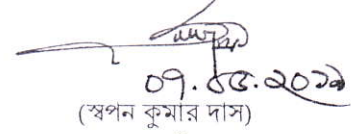 ০৭.০৫.২০১৯
(স্বপন কুমার দাস)